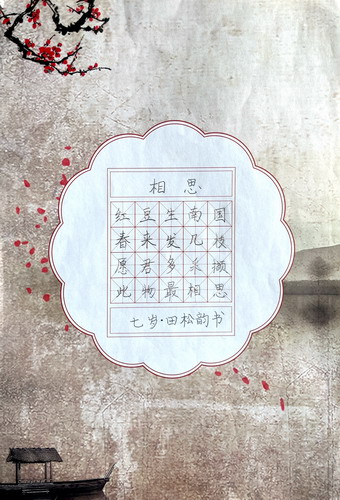 相思
红豆生南国
春来发几枝
愿君多采撷
此物最相思
七岁·田松韵书